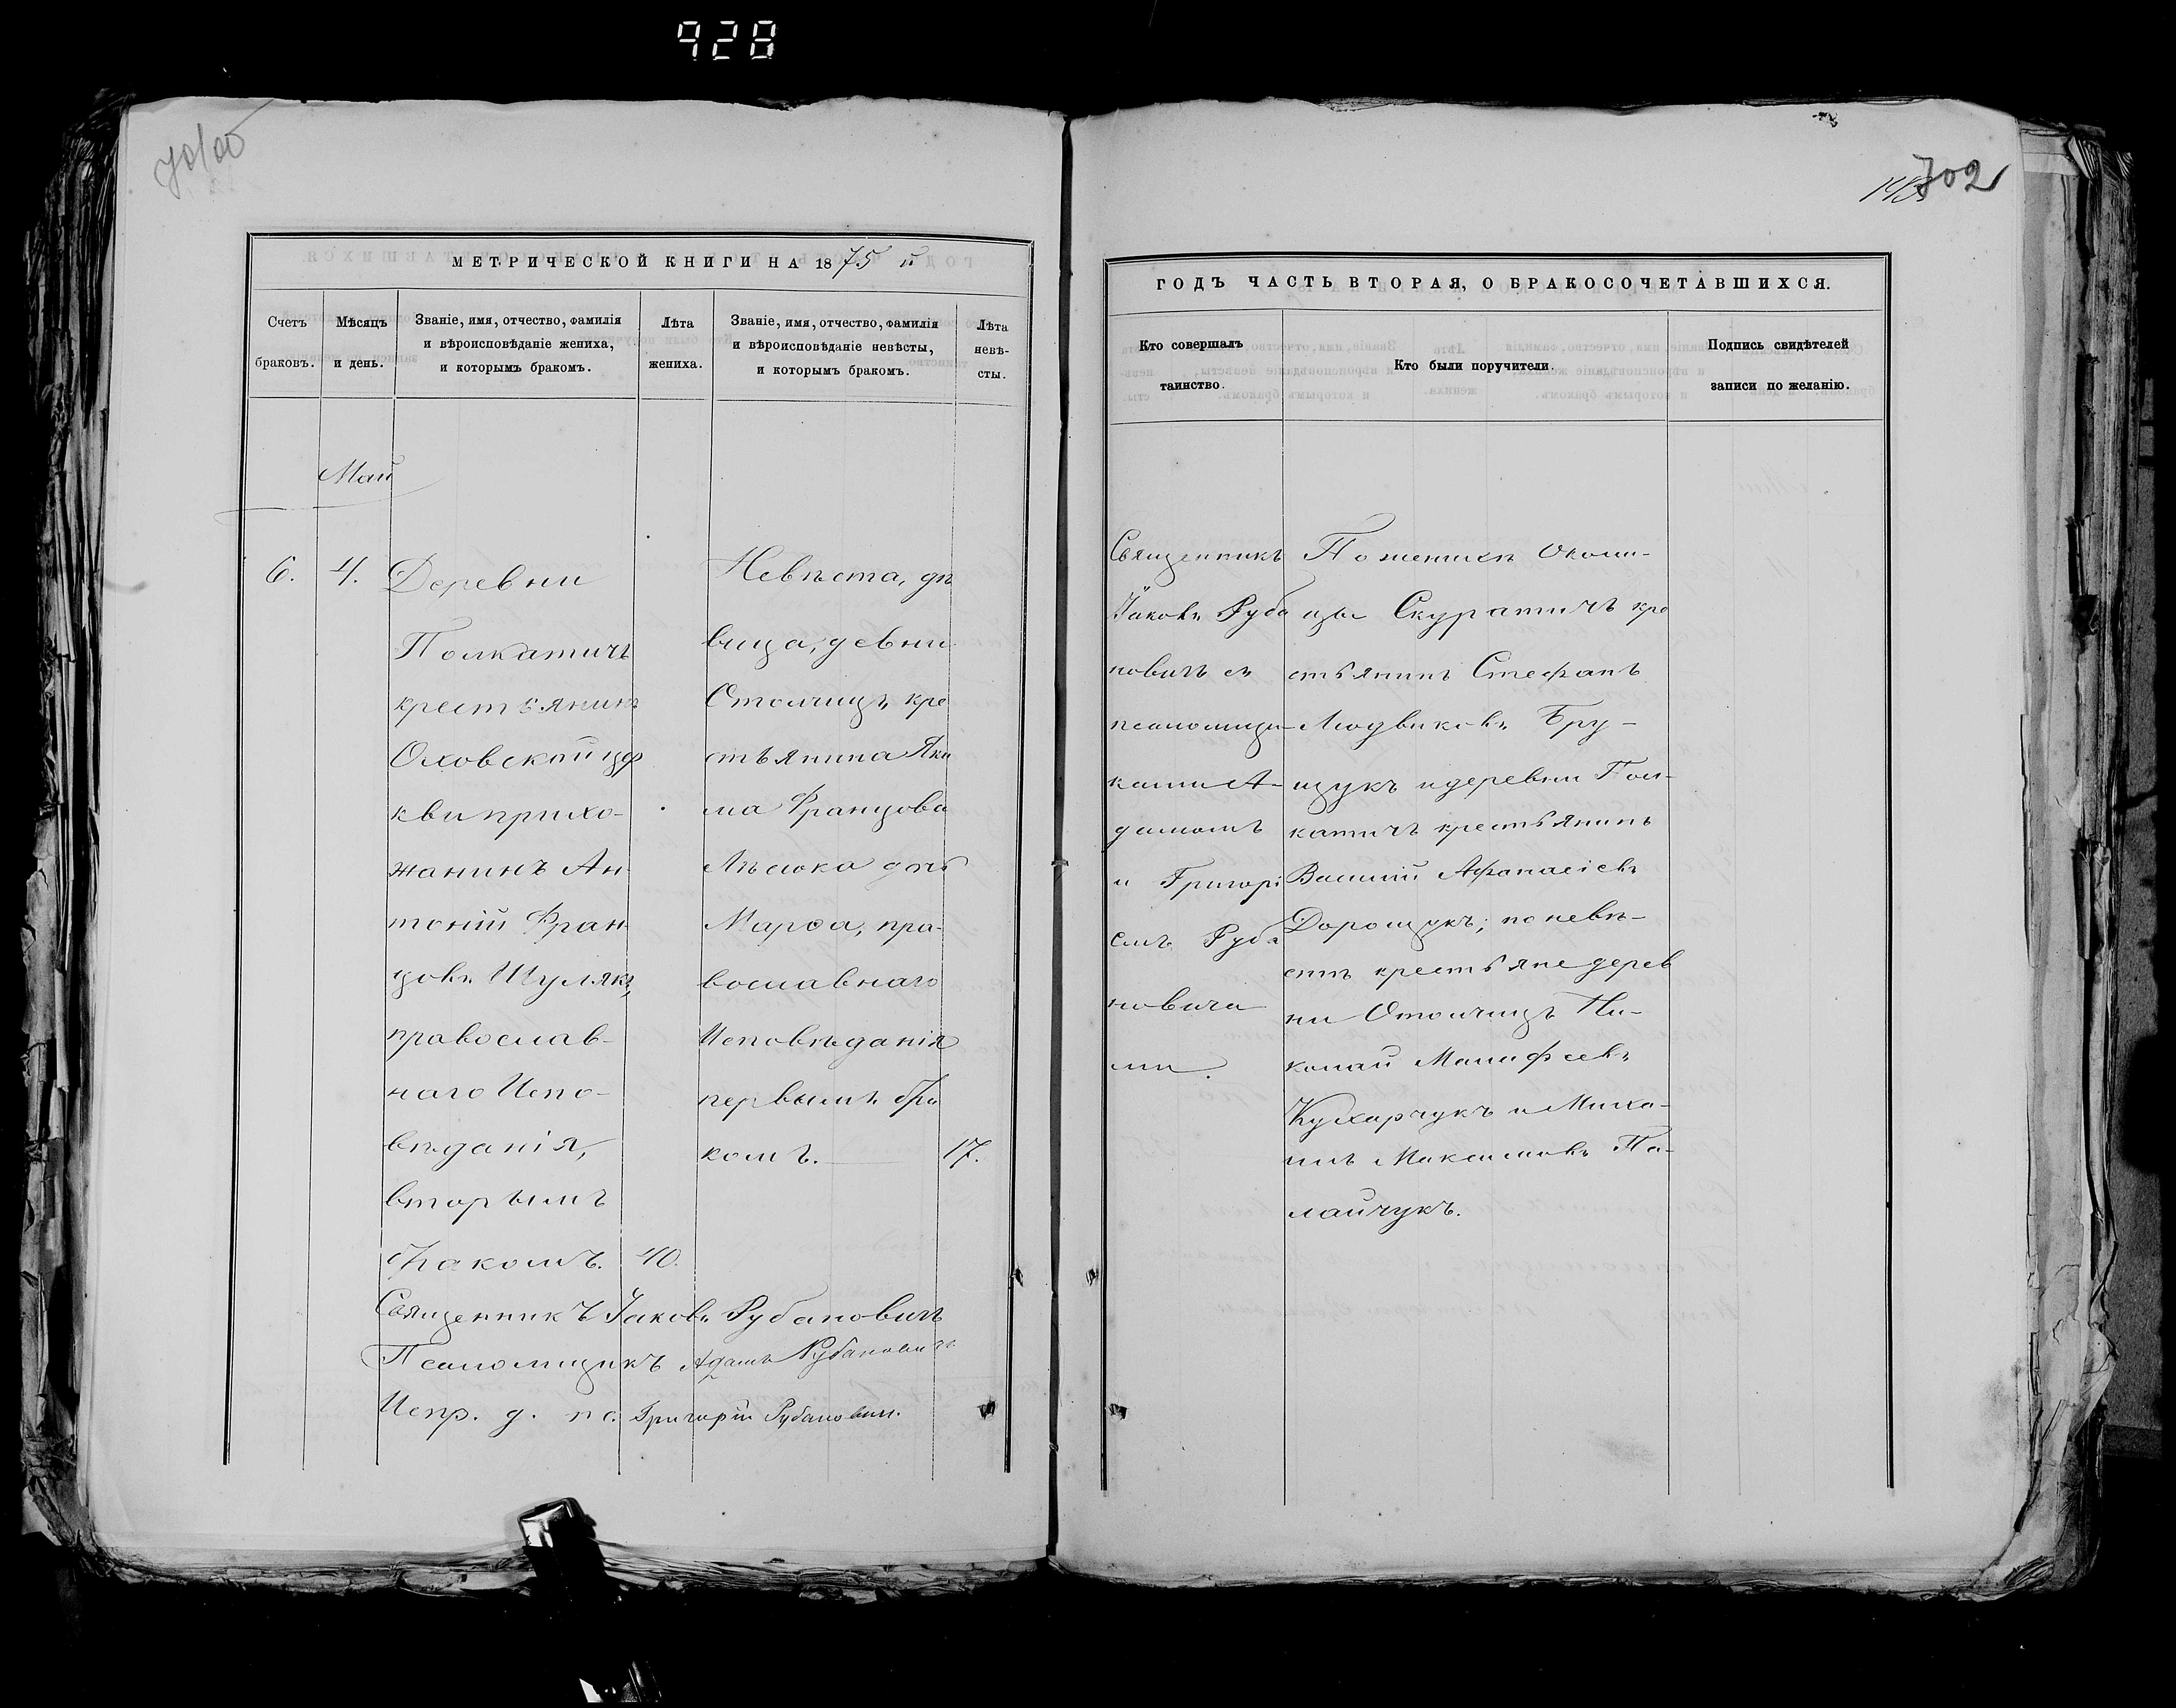 928
702
МЕТРИЧЕСКОЙ КНИГИ НА 1875 й
Счетъ браковъ.
Мѣсяцъ и день.
Званіе, имя, отчество, фамилія
и вѣроисповѣданіе жениха,
и которымъ бракомъ.
Лѣта жениха.
Званіе, имя, отчество, фамилія
и вѣроисповѣданіе невѣсты,
и которымъ бракомъ.
Лѣта
невѣ-
сты.
Май
6.
4.
Деревни
Полкатичъ
крестьянинъ
Оховской це
кви прихо-
жанинъ Ан
тоній Фран
цовъ Шулякъ,
православ-
наго Испо-
вѣданія,
вторымъ
бракомъ.
40.
Невѣста, дѣ
вица, девни
Отолчицъ кре
стьянина Яки
ма Францова
Лѣсюка дочь
Марѳа, пра-
вославнаго
Исповѣданія
первымъ бра
комъ.
17.
Священникъ Іаковъ Рубановичъ
Псаломщикъ Адамъ Рубановичъ
Испр. д. пс. Григорій Рубановичъ.
ГОДЪ ЧАСТЬ ВТОРАЯ, О БРАКОСОЧЕТАВШИХСЯ.
Кто совершалъ
таинство.
Кто были поручители.
Подпись свидѣтелей
записи по желанію.
Священникъ
Іаковъ Руба
новичъ съ
псаломщи-
ками А-
дамомъ
и Григорі
емъ Руба
новича
ми.
По женихѣ Околи-
цы Скуратичъ кре
стьянинъ Стефанъ
Людвиковъ Бру-
щукъ и деревни Пол-
катичъ крестьянинъ
Василій Афанасіевъ
Дорощукъ; по невѣ-
стѣ крестьяне дерев
ни Отолчицъ Ни-
колай Матфеевъ
Кухарчукъ и Миха-
илъ Максимовъ Па-
лайчукъ.